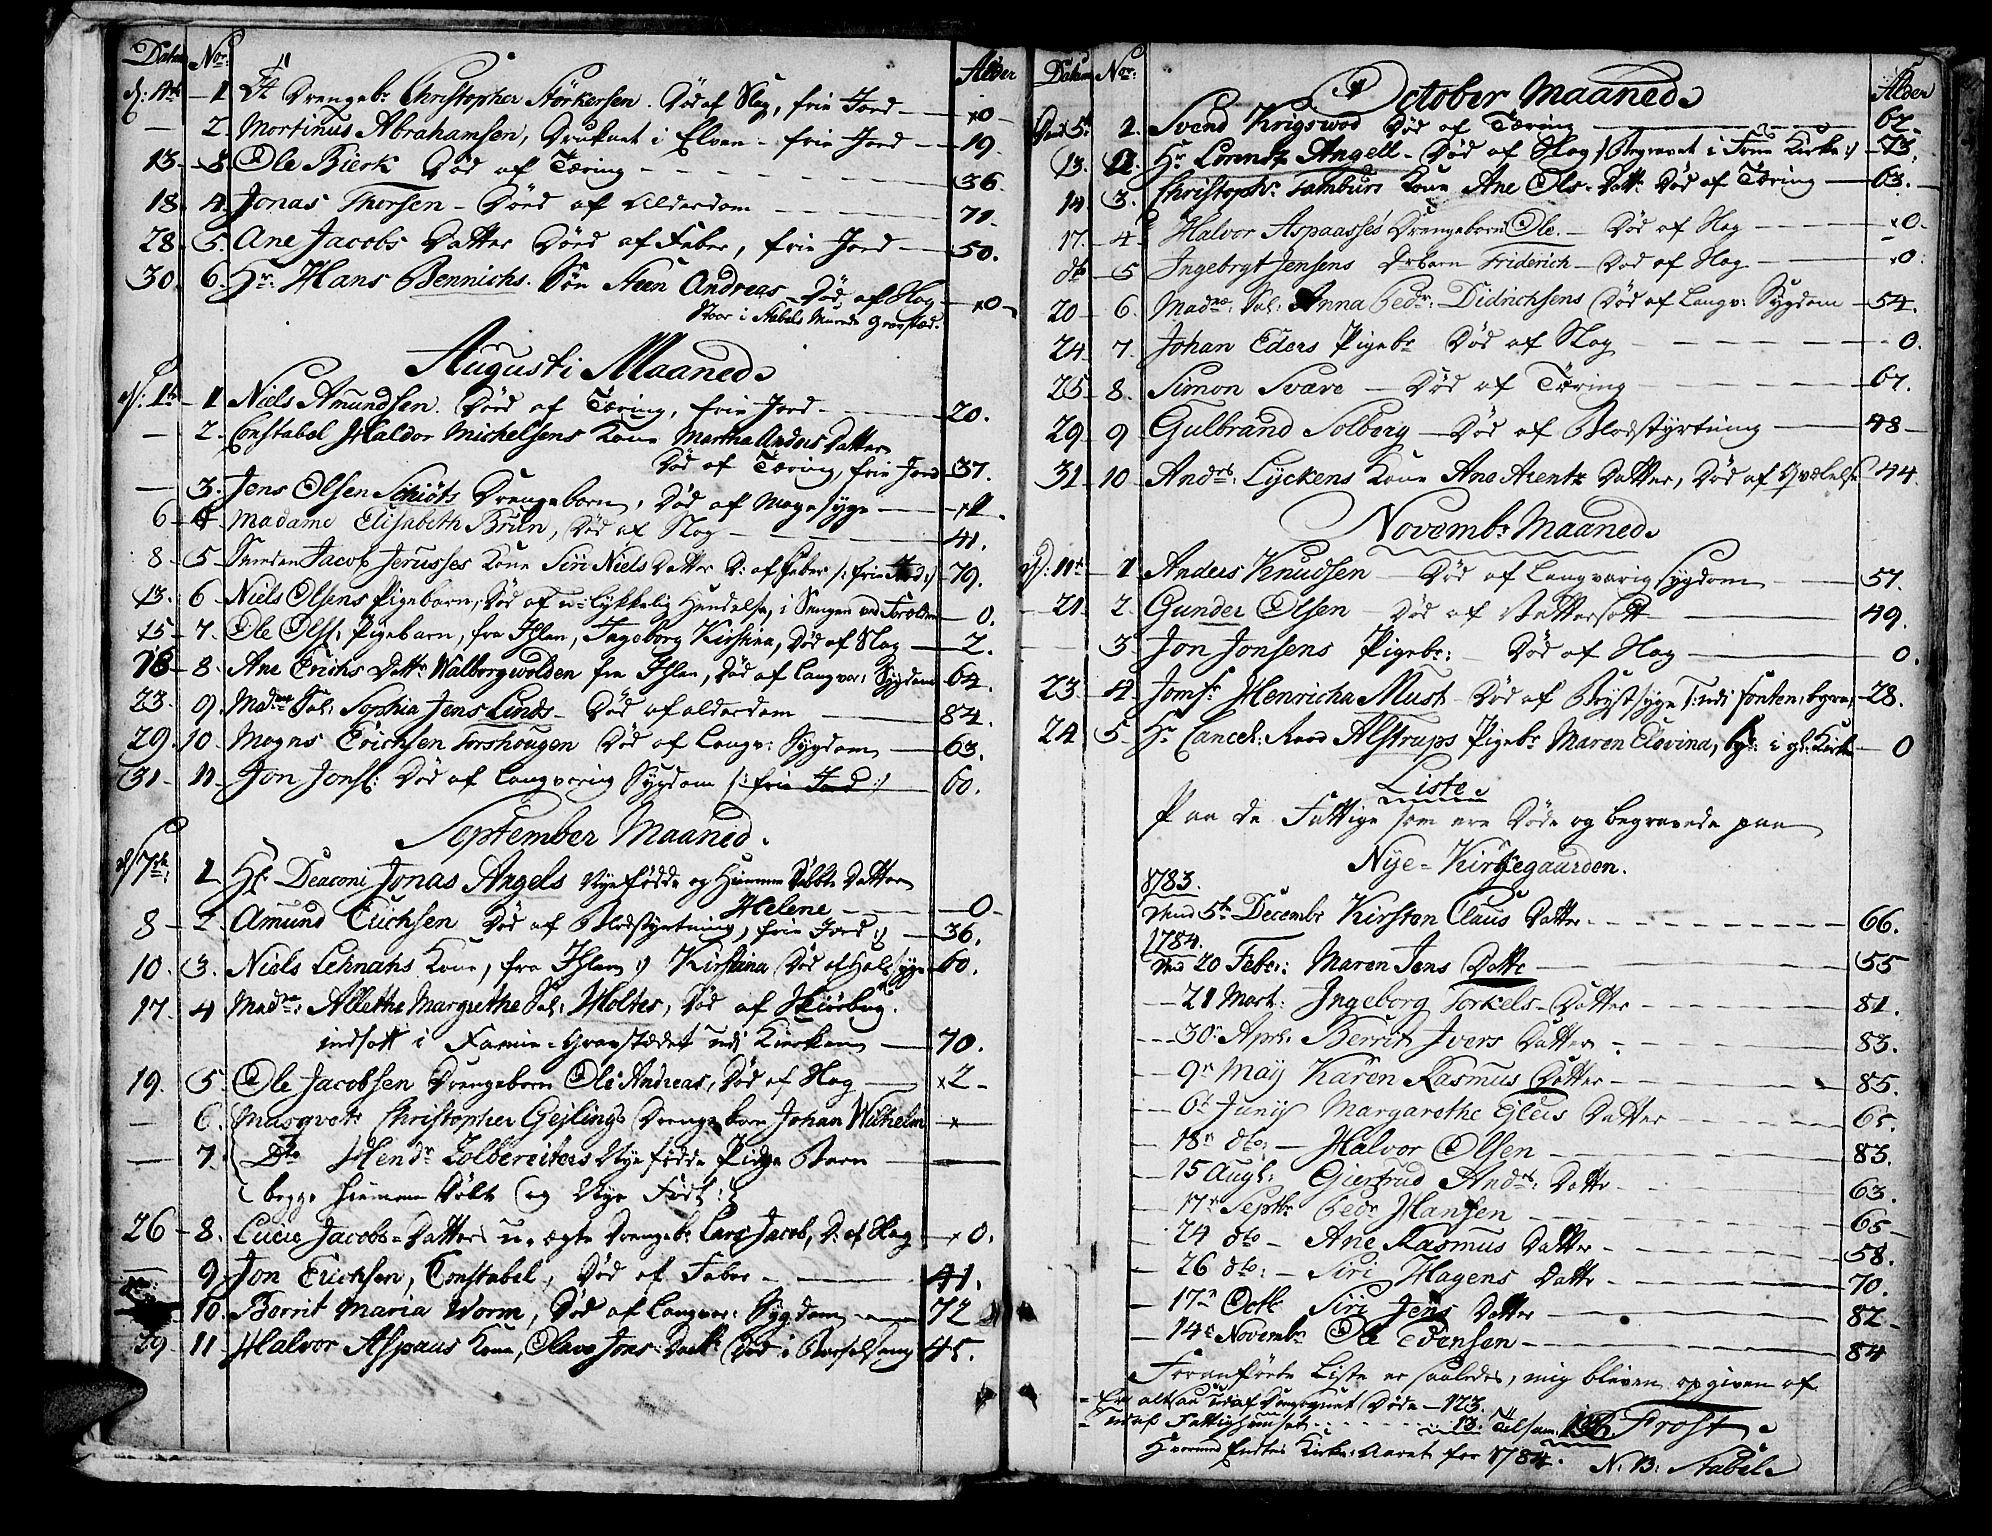 Datum Nor: Alder
d: 11te 1 Et Drengebn Christopher Störkersen. Död af Slag, frie Jord x0
2. Mortinus Abrahamsen, Druknet i Elven - frie Jord 19.
13. 3. Ole Bierk Död af Tæring 36.
18. 4. Jonas Thorsen - Döed af Alderdom 71.
28. 5. Ane Jacobs Datter Döed af Feber, frie Jord 50.
30. 6. Hr: Hans Bennichs Sön Steen Andreas Död af Slag x0
Augusti Maaned
d: 1te 1 Niels Amundsen. Döed af Tæring, frie Jord 20.
2. Constabel Haldor Michelsens Kone Martha Anders Datter
Död af Tæring, frie Jord 37.
3. Jens Olsen Schiöts Drengebarn, Död af Mavesyge x1.
6 4 Madame Elisabeth Brun, Död af Slag 41.
8. 5 Jacob Jerusses Kone Siri Niels Datter D: af Feber /: frie Jord :/ 79.
13. 6 Niels Olsens Pigebarn, Död af u-lykkelig Hendelse, i Sengen ved Forældre 0.
15 7. Ole Ols: Pigebarn, fra Ihlen, Ingeborg Kirstina, Död af Slag 2.
18 8. Ane Erichs Dattr Walborgwolden fra Ihlen, Död af langvar: Sygdom 64.
23. 9. Madme Sal: Sophia Jens Linds - Död af alderdom 84.
29. 10. Mogns Erichsen Torshougen Död af langv: Sygdom 63.
31 11. Jon Jons: Död af langvarig Sygdom /: frie Jord :/ 60.
September Maaned.
d 7de: 1 Hr Deaconi Jonas Angels Nyefödde og Hiemme Döbte Datter
Helene 0
8 2. Amund Erichsen Död af Blodstyrtning, frie Jord :/ 36.
10. 3. Niels Lehnahs Kone, fra Ihlen :/ Kirstina Död af Halssyge 60.
17. 4 Madme: Allethe Margrethe Sal: Holtes, Död af Skiörbug.
indsatt i Familie-Gravstædet udi Kierken 70.
19. 5. Ole Jacobsen Drengebarn Ole Andreas, Död af Slag x2
6. Musqvet: Christopher Geislings Drengebarn Johan Wilhelm x
7. Dto Hendr Zolbereiters Nye födde Pige Barn
begge hiemme Döbt og Nye Födt :/
26 8. Lucie Jacobs-Datters u-ægte Drengebn Lars Jacob, D: af Slag x0.
9 Jon Erichsen, Constabel, Död af Feber 41.
10. Berrit Maria Worm, Död af langvar: Sygdom 72
29 11 Halvor Aspaas Kone, Olava Jons-Dattr Död i Barselseng 45.
Datum Nor: Alder
October Maaned
d 5te 1. Svend Krigswod Död af Tæring 62
13. 2. Hr Lorentz Angell - Död af Slag /: Begravet i Frue Kirke :/ 73.
14 3. Christophr: Tamburs Kone Ane Ols-Dattr Död af Tæring 63.
17. 4 Halvor Aspaasses Drengebarn Ole. Död af Slag x0.
dto 5 Ingebrgt Jensens Drbarn Friderich - Död af Slag x0.
20 6. Madme: Sal: Anna Pedr: Didrichsens Död af langv: Sygdom 54.
24. 7. Johan Eders Pigebn Död af Slag 0.
25 8. Simon Svare - Död af Tæring 67.
29 9 Gulbrand Solberg - Död af Blodstyrtning 48
31 10 Andrs: Lyckens Kone Ane Arentz Datter, Död af Qvælelse 44
Novembr Maaned
d: 11te 1 Anders Knudsen - Död af langvarig sygdom 57.
21. 2. Gunder Olsen - Död af Vattersott 49.
3 Jon Jonsens Pigebn: Död af Slag 0.
23. 4. Jomfr Henricha Must - Död af Brystsyge 28.
24 5. Hr Cancel: Raad Alstrups Pigebn Maren Elevina, bgr: i gl: Kirke 0
Liste
Paa de Fattige som ere Döde og begravede paa
Nye-Kirkegaarden.
1783.
d 5te Decembr Kirsten Claus Datter 66.
1784.
d 20 Febr: Maren Jens Datte 55
21 Mart: Ingeborg Torkels-Datter 81.
30 Apri. Berrit Ivers Datter 83.
9n Maij Karen Rasmus Datter 85.
6te Junij Margarethe Datter 65.
18n dto: Halvor Olsen 83.
15 Augt: Giertrud Andrs: Datte 63.
17n Septbr Pedr Hansen 65
24 dto Ane Rasmus Datter 58.
26 dto: Siri Hagens Datte 70.
17n Octbr Siri Jens Datter 82
14e Novembr Ole Evensen 84
Foranförte Liste er saaledes, mig bleven opgiven af
Er altsaa udaf Sognet Döde 123.
udaf Fattighuuset 13. Tilsam: 136 Frost
Hvormed Endtes Kirke-Aaret for 1784. N. B: Stabel